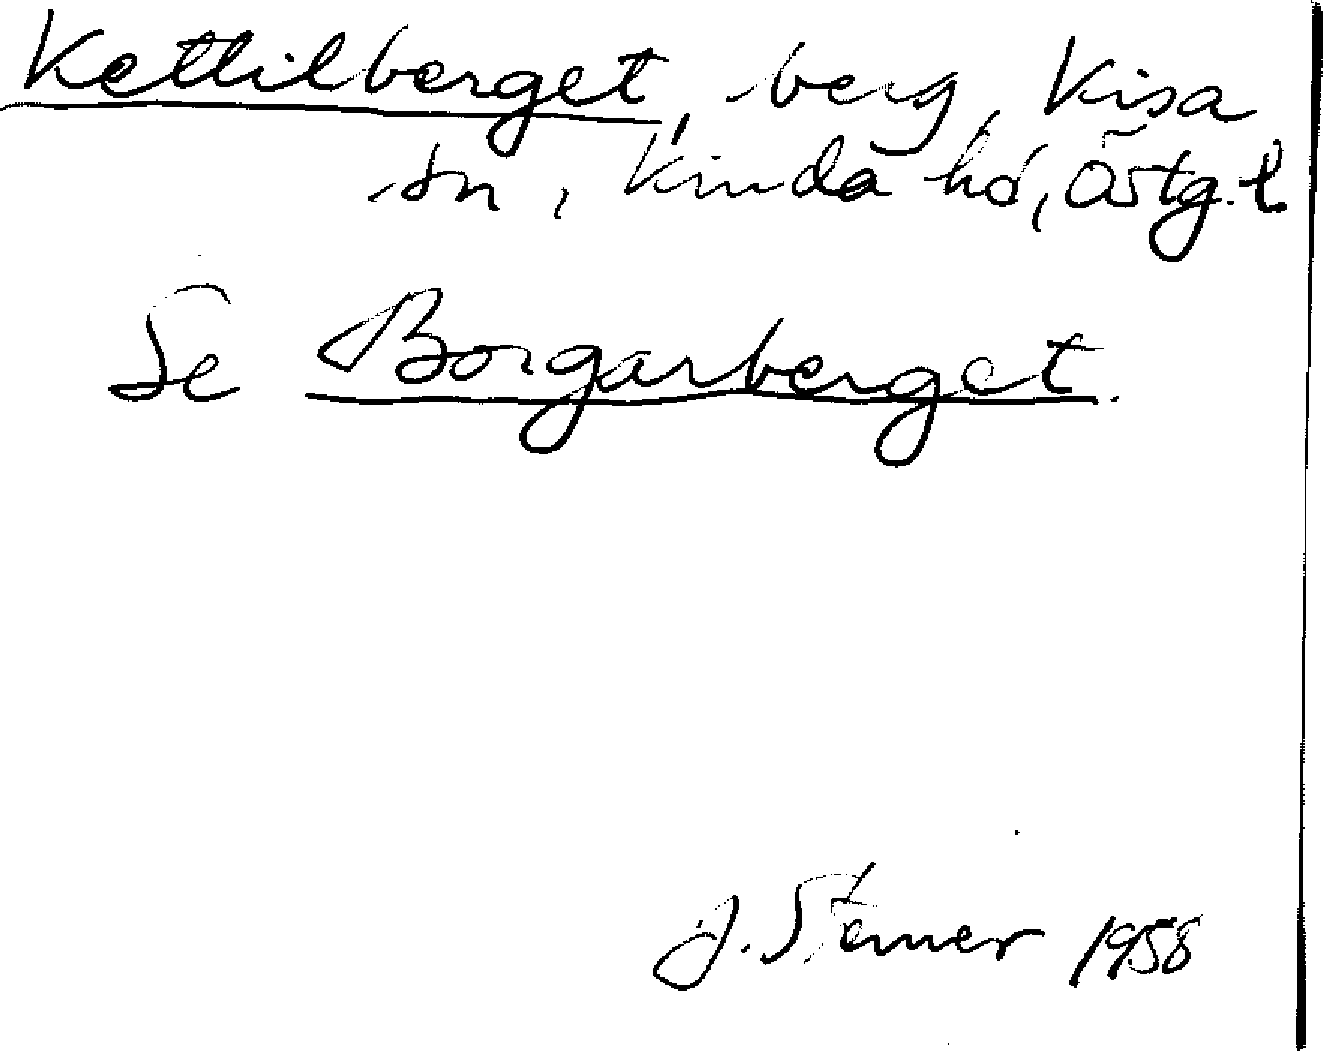 Kettilberget, berg, Kisa
sn, Kinda hd, Östg. l.
Se Borgarberget.
J. Stemer 1958